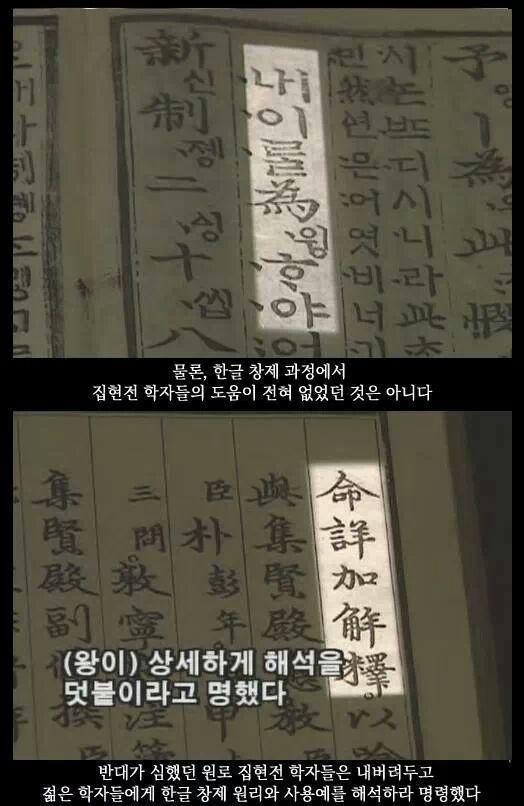 予 為 此 憫
시논ᄠᅳ디시니라此
然연은어엿비너기
내이ᄅᆞᆯ為윙ᄒᆞ야
新신制졩二ᅀᅵᆼ十씹八
물론, 한글 창제 과정에서
집현전 학자들의 도움이 전혀 없었던 것은 아니다
命詳加解釋。以
與集賢殿 教
臣朴彭年 申
三問。敦寧注簿
集賢殿副
(왕이) 상세하게 해석을
덧붙이라고 명했다
반대가 심했던 원로 집현전 학자들은 내버려두고
젊은 학자들에게 한글 창제 원리와 사용예를 해석하라 명령했다